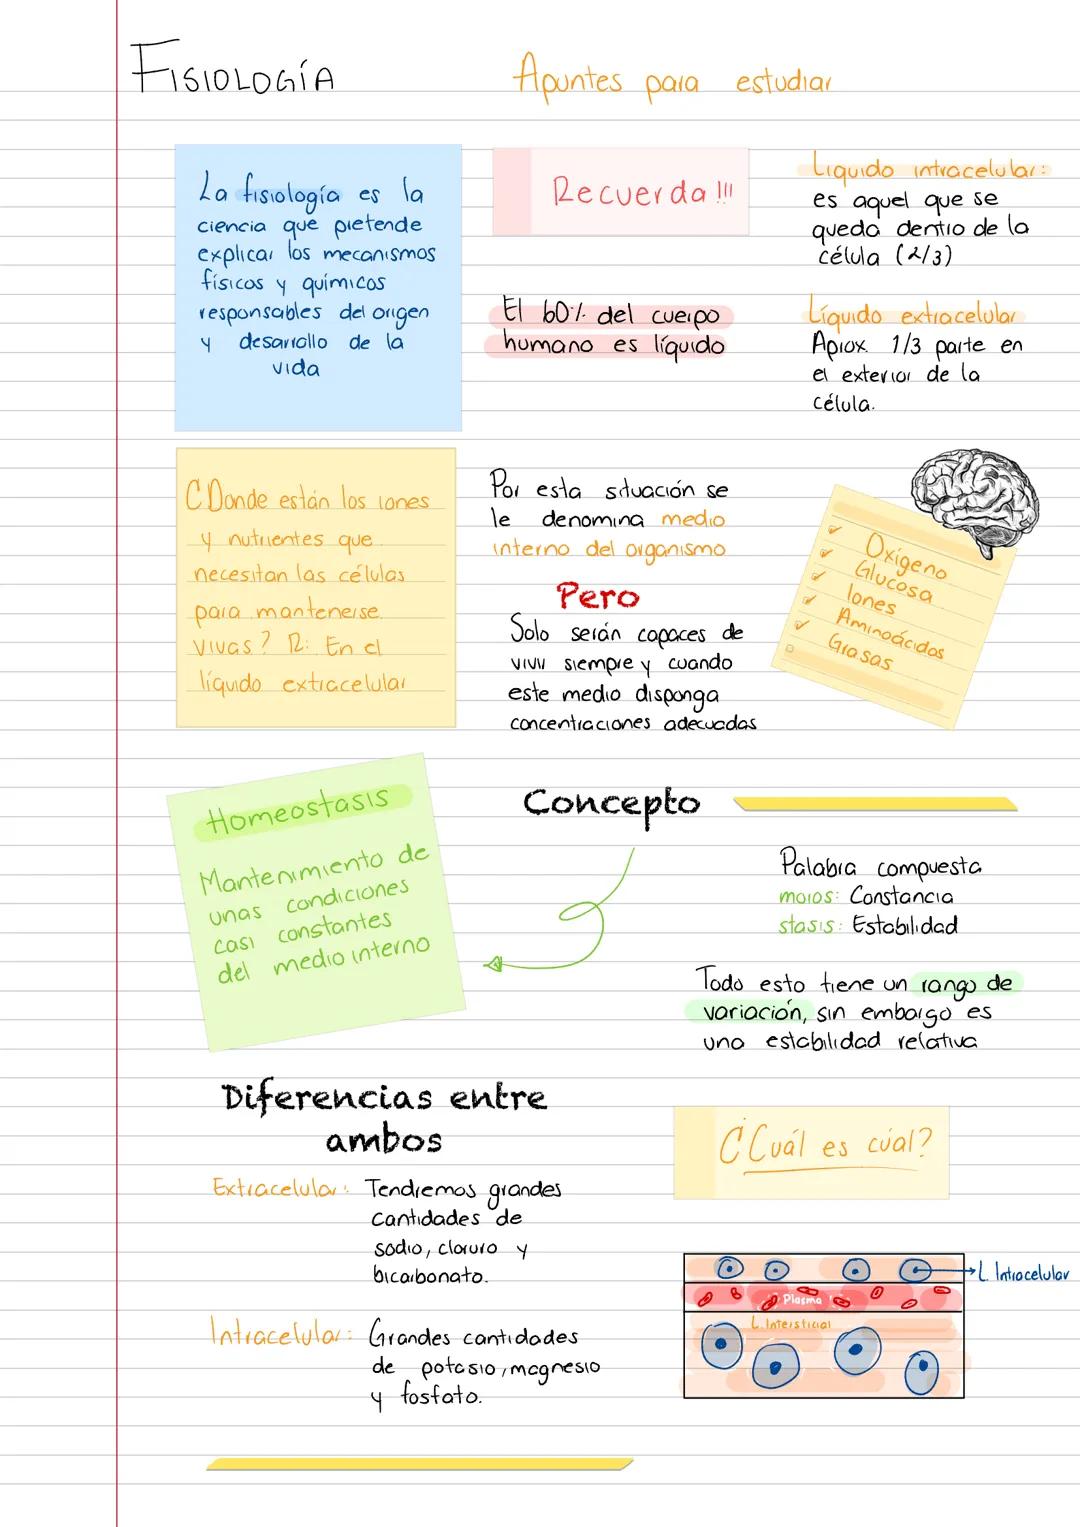 FISIOLOGÍA
Apuntes para estudiar
La fisiología es la
ciencia que pretende
explicar los mecanismos
físicos y químicos
responsables del origen
y desarrollo de la
vida
Recuerda !!!
El 60% del cuerpo
humano es líquido
Líquido intracelular:
es aquel que se
queda dentro de la
célula (2/3)
Líquido extracelular
Aprox 1/3 parte en
el exterior de la
célula.
¿Donde están los iones
y nutrientes que
necesitan las células
para mantenerse
vivas? R: En el
líquido extracelular
Por esta situación se
le denomina medio
interno del organismo
Pero
Solo serán capaces de
vivir siempre y cuando
este medio disponga
concentraciones adecuadas
Oxígeno
Glucosa
Iones
Aminoácidos
Grasas
Homeostasis
Mantenimiento de
unas condiciones
casi constantes
del medio interno
Concepto
Palabra compuesta
moros: Constancia
stasis: Estabilidad
Todo esto tiene un rango de
variación, sin embargo es
una estabilidad relativa
Diferencias entre
ambos
Extracelular: Tendremos grandes
cantidades de
sodio, cloruro y
bicarbonato.
Intracelular: Grandes cantidades
de potasio, magnesio
y fosfato.
¿Cuál es cúal?
L. Intracelular
Plasma
L. Intersticial